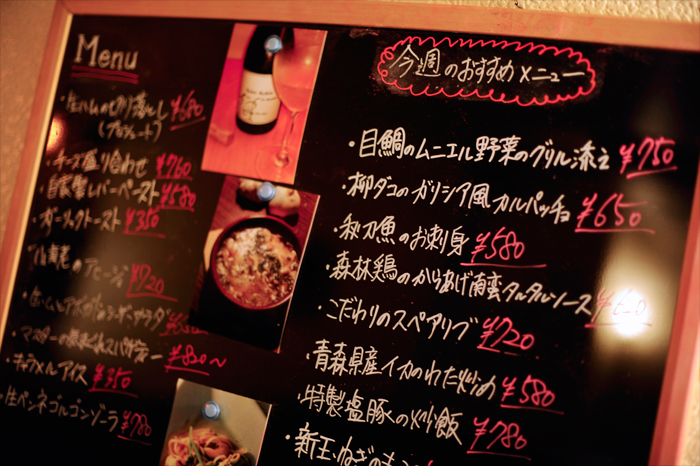 Menu
・生ハムの切り落とし ¥680
(プロシュート)
・チーズ盛り合わせ ¥760
・自家製レバーペースト ¥580
・ガーリックトースト ¥350
小海老のアヒージョ ¥720
・生ハムとアボカドのシーザーサラダ
・マスターの気まぐれスパゲティー ¥820〜
・キャラメルアイス ¥350
・生ペンネゴルゴンゾーラ ¥780
今週のおすすめメニュー
・目鯛のムニエル野菜のグリル添え ¥750
・柳ダコのガリシア風カルパッチョ ¥650
・秋刀魚のお刺身 ¥580
・森林鶏のからあげ南蛮タルタルソース
・こだわりのスペアリブ ¥720
・青森県産イカのわた炒め ¥580
・特製塩豚の炒飯 ¥780
・新玉ねぎの